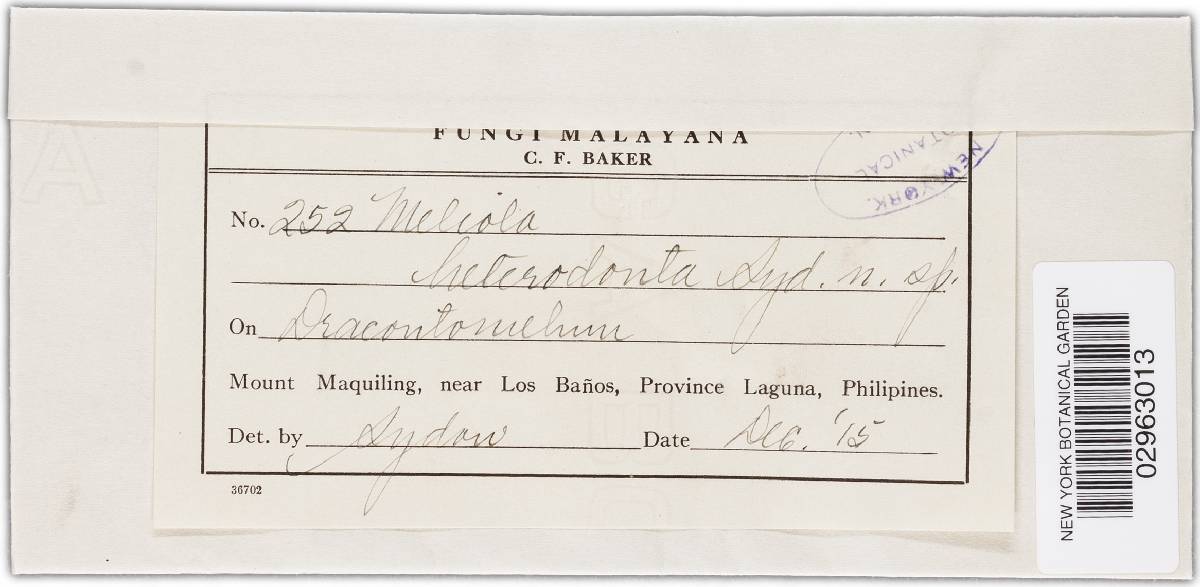 FUNGI MALAYANA
C. F. BAKER
No. 252 Meliola
heterodonta Syd. n. sp.
On Dracontomelum
Mount Maquiling, near Los Baños, Province Laguna, Philipines.
Det. by Sydow Date Dec. '15
36702
NEW YORK.
BOTANICAL
NEW YORK BOTANICAL GARDEN
02963013